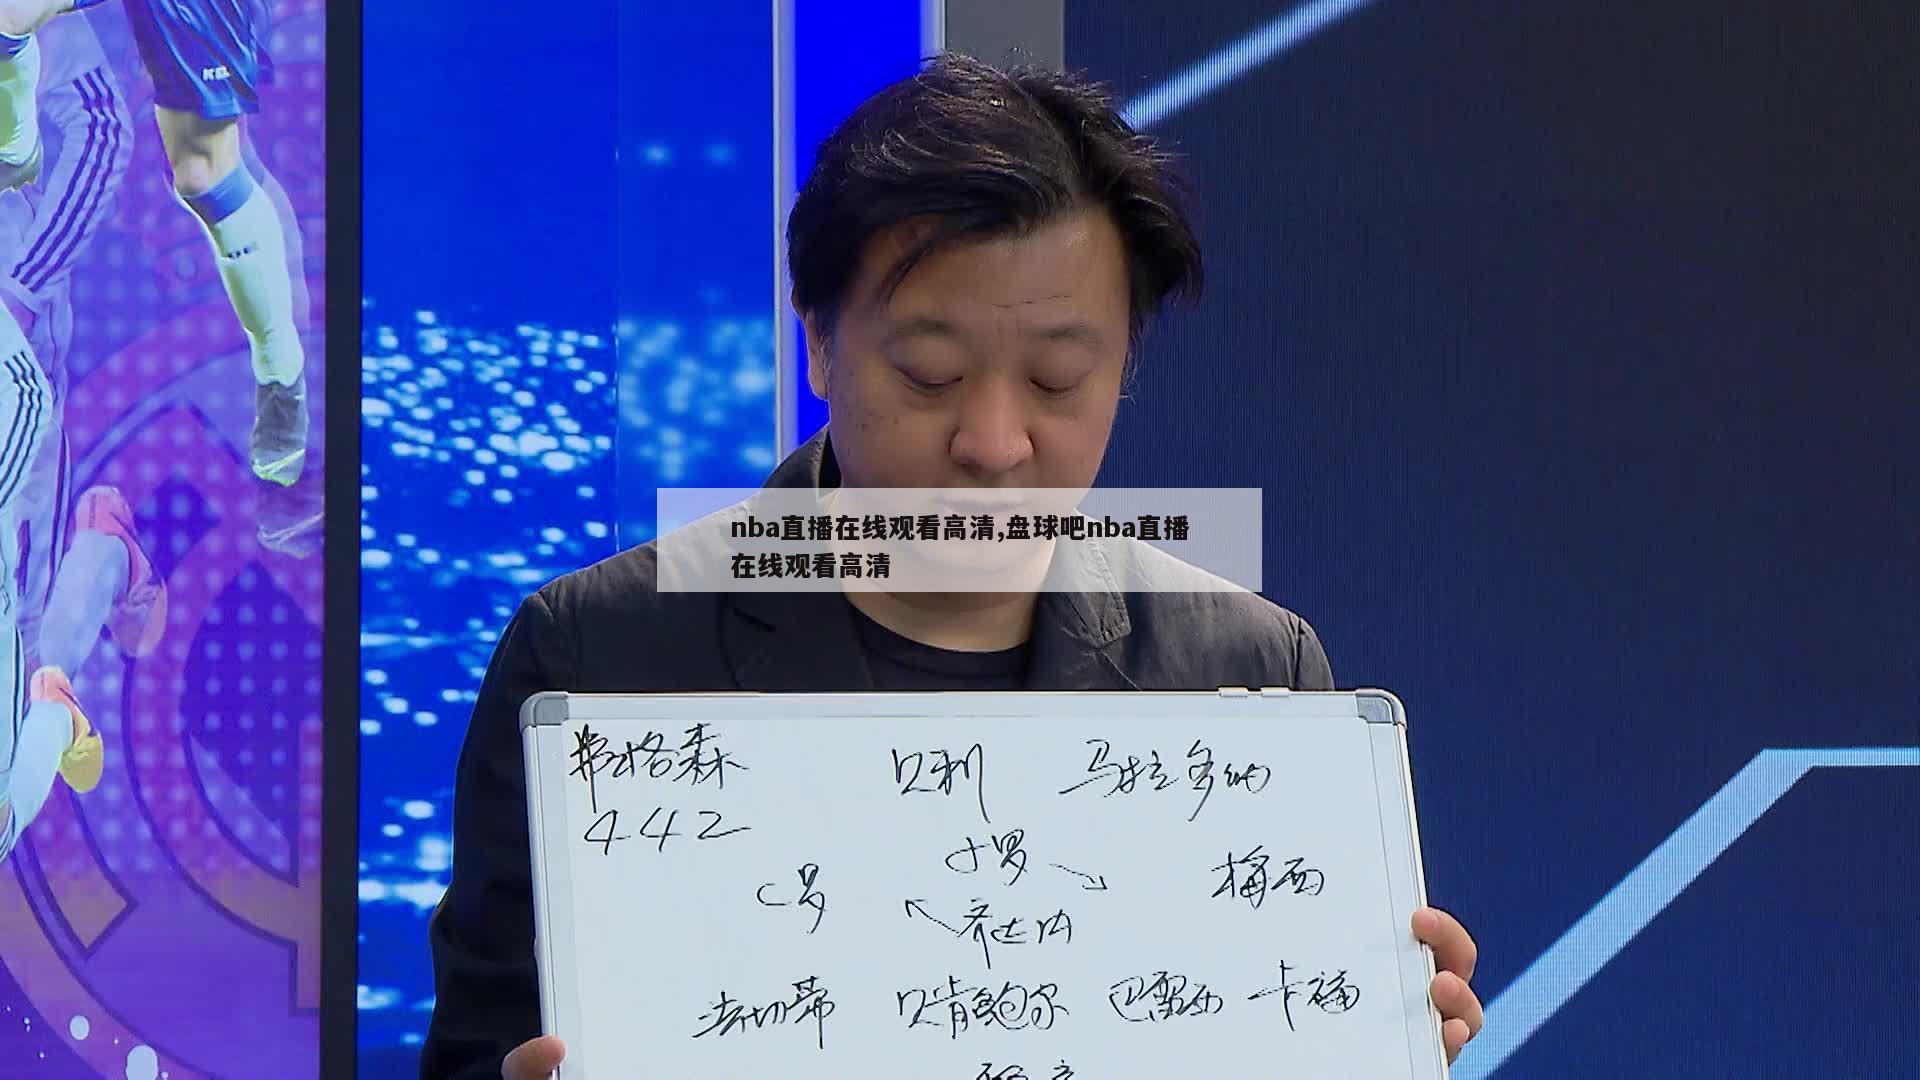 nba直播在线观看高清,盘球吧nba直播
在线观看高清
弗格森 贝利 马拉多纳
442
小罗
C罗 梅西
齐达内
法切蒂 贝肯鲍尔 巴雷西 卡福